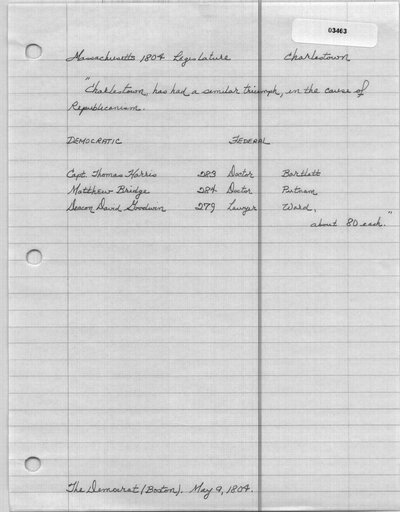 03463
Massachusetts 1804 Legislature Charlestown
"Charlestown has had a similar triumph, in the cause of
Republicanism.
DEMOCRATIC FEDERAL
Capt. Thomas Harris 283 Doctor Bartlett
Matthew Bridge 284 Doctor Putnam
Deacon David Goodwin 279 Lawyer Ward,
about 80 each."
The Democrat (Boston). May 9, 1804.